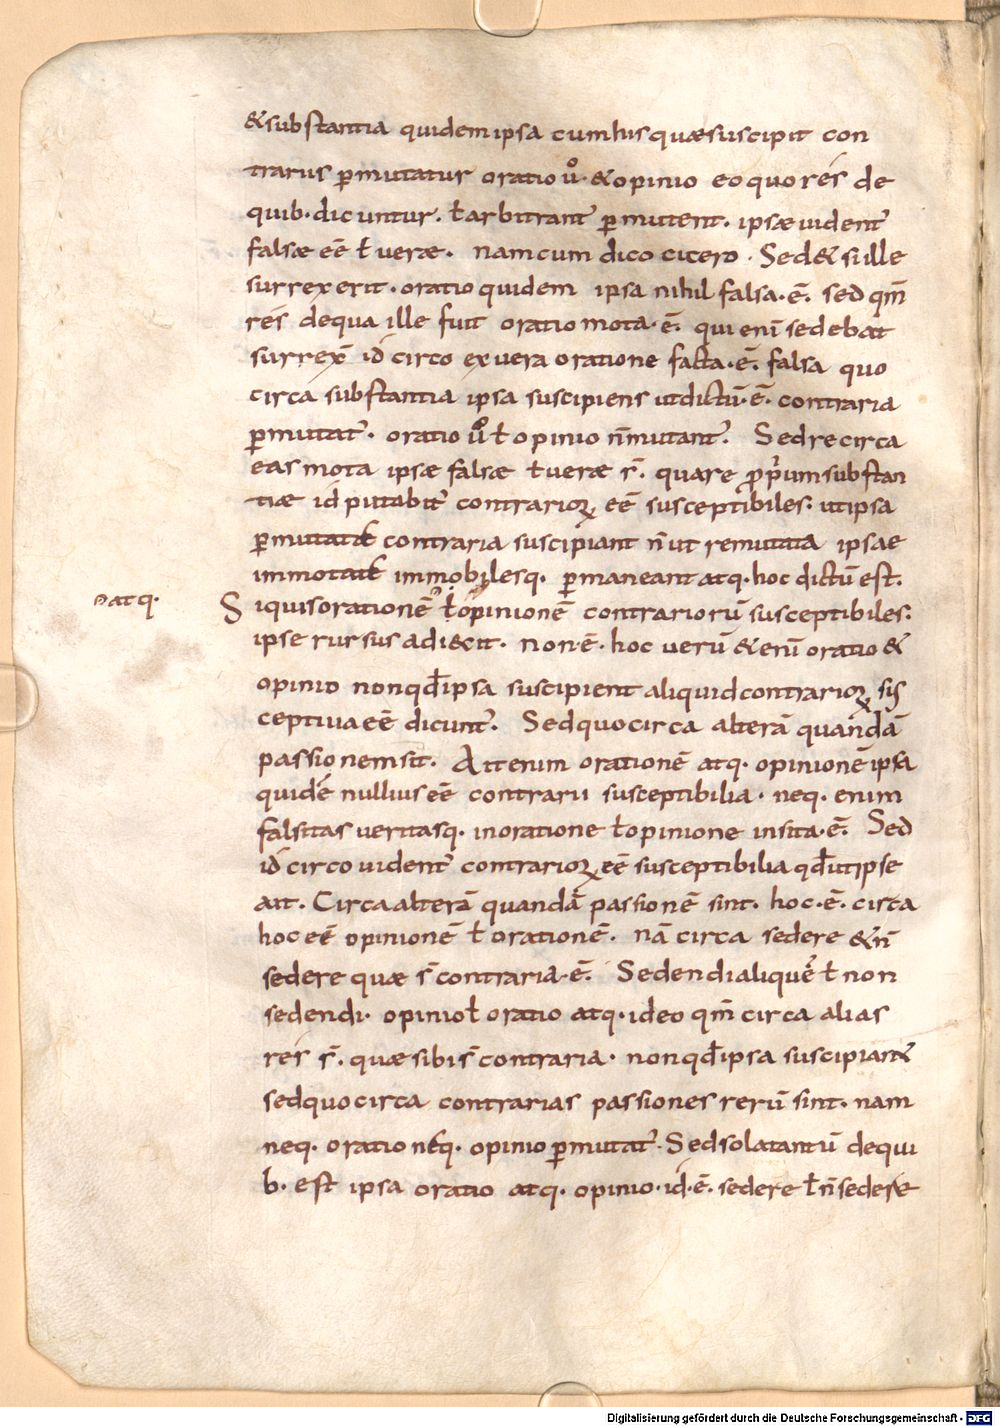 &substantia quidem ipsa cum his quæ suscipit con
trariis p̄mutatur oratio ů·&opinio eo quo rés de
quib·dicuntur·ł arbitrant̄ p̄mutent·ipsæ uident̄
falsæ eē ł veræ· nam cum dico cicero·Sed& si ille
surrexerit·oratio quidem ipsa nihil falsa·ē·sed qm̄
rés de qua ille fuit oratio mota·ē·qui eni̅ sedebat
surrex̄ id circo ex vera oratione facta·ē·falsa quo
circa substantia ipsa suscipiens ut dictū·ē·contraria
p̄mutat̄·oratio ů ł opinio n̄ mutant̄·Sed re circa
eas mota ipsæ falsæ ł veræ s̄·quare p̱prium substan
tiæ id putabit̄ contrarioꝝ eē susceptibiles·ut ipsa
p̄mutata& contraria suscipiant n̄ ut remutata ipsae
immotae& immobilesq·p̄maneant atq·hoc dictū est·
ɔatq·
Si quis orationē ł opinionē contrariorū susceptibiles·
ipse rursus adi&cit·non·ē·hoc verū &eni̅ oratio &
opinio non qđ ipsa suscipient aliquid contrarioꝝ sus
ceptiva eē dicunt̄·Sed quo circa alterā quandā
passionem sit·At tenim orationē atq·opinionē ipsa
quidē nullius eē contrarii susceptibilia·neq·enim
falsitas veritasq·in oratione ł opinione insita·ē·Sed
id circo uident̄ contrarioꝝ eē susceptibilia qđ ut ipse
ait·Circa alterā quandā passionē sint·hoc·ē·circa
hoc eē opinionē ł orationē·nā circa sedere &n̄
sedere quæ s̄ contraria·ē·Sedendi aliquē ł non
sedendi·opinio ł oratio atq·ideo qm̄ circa alias
rés s̄·quæ sibi s̄ contraria·non qđ ipsa suscipiant
sed quo circa contrarias passiones rerū sint·nam
neq·oratio neq·opinio p̄mutat̄·Sed sola tantū de qui
b·est ipsa oratio atq·opinio·id·ē·sedere ł n̄ sedere
Digitalisierung gefördert durch die Deutsche Forschungsgemeinschaft - DFG